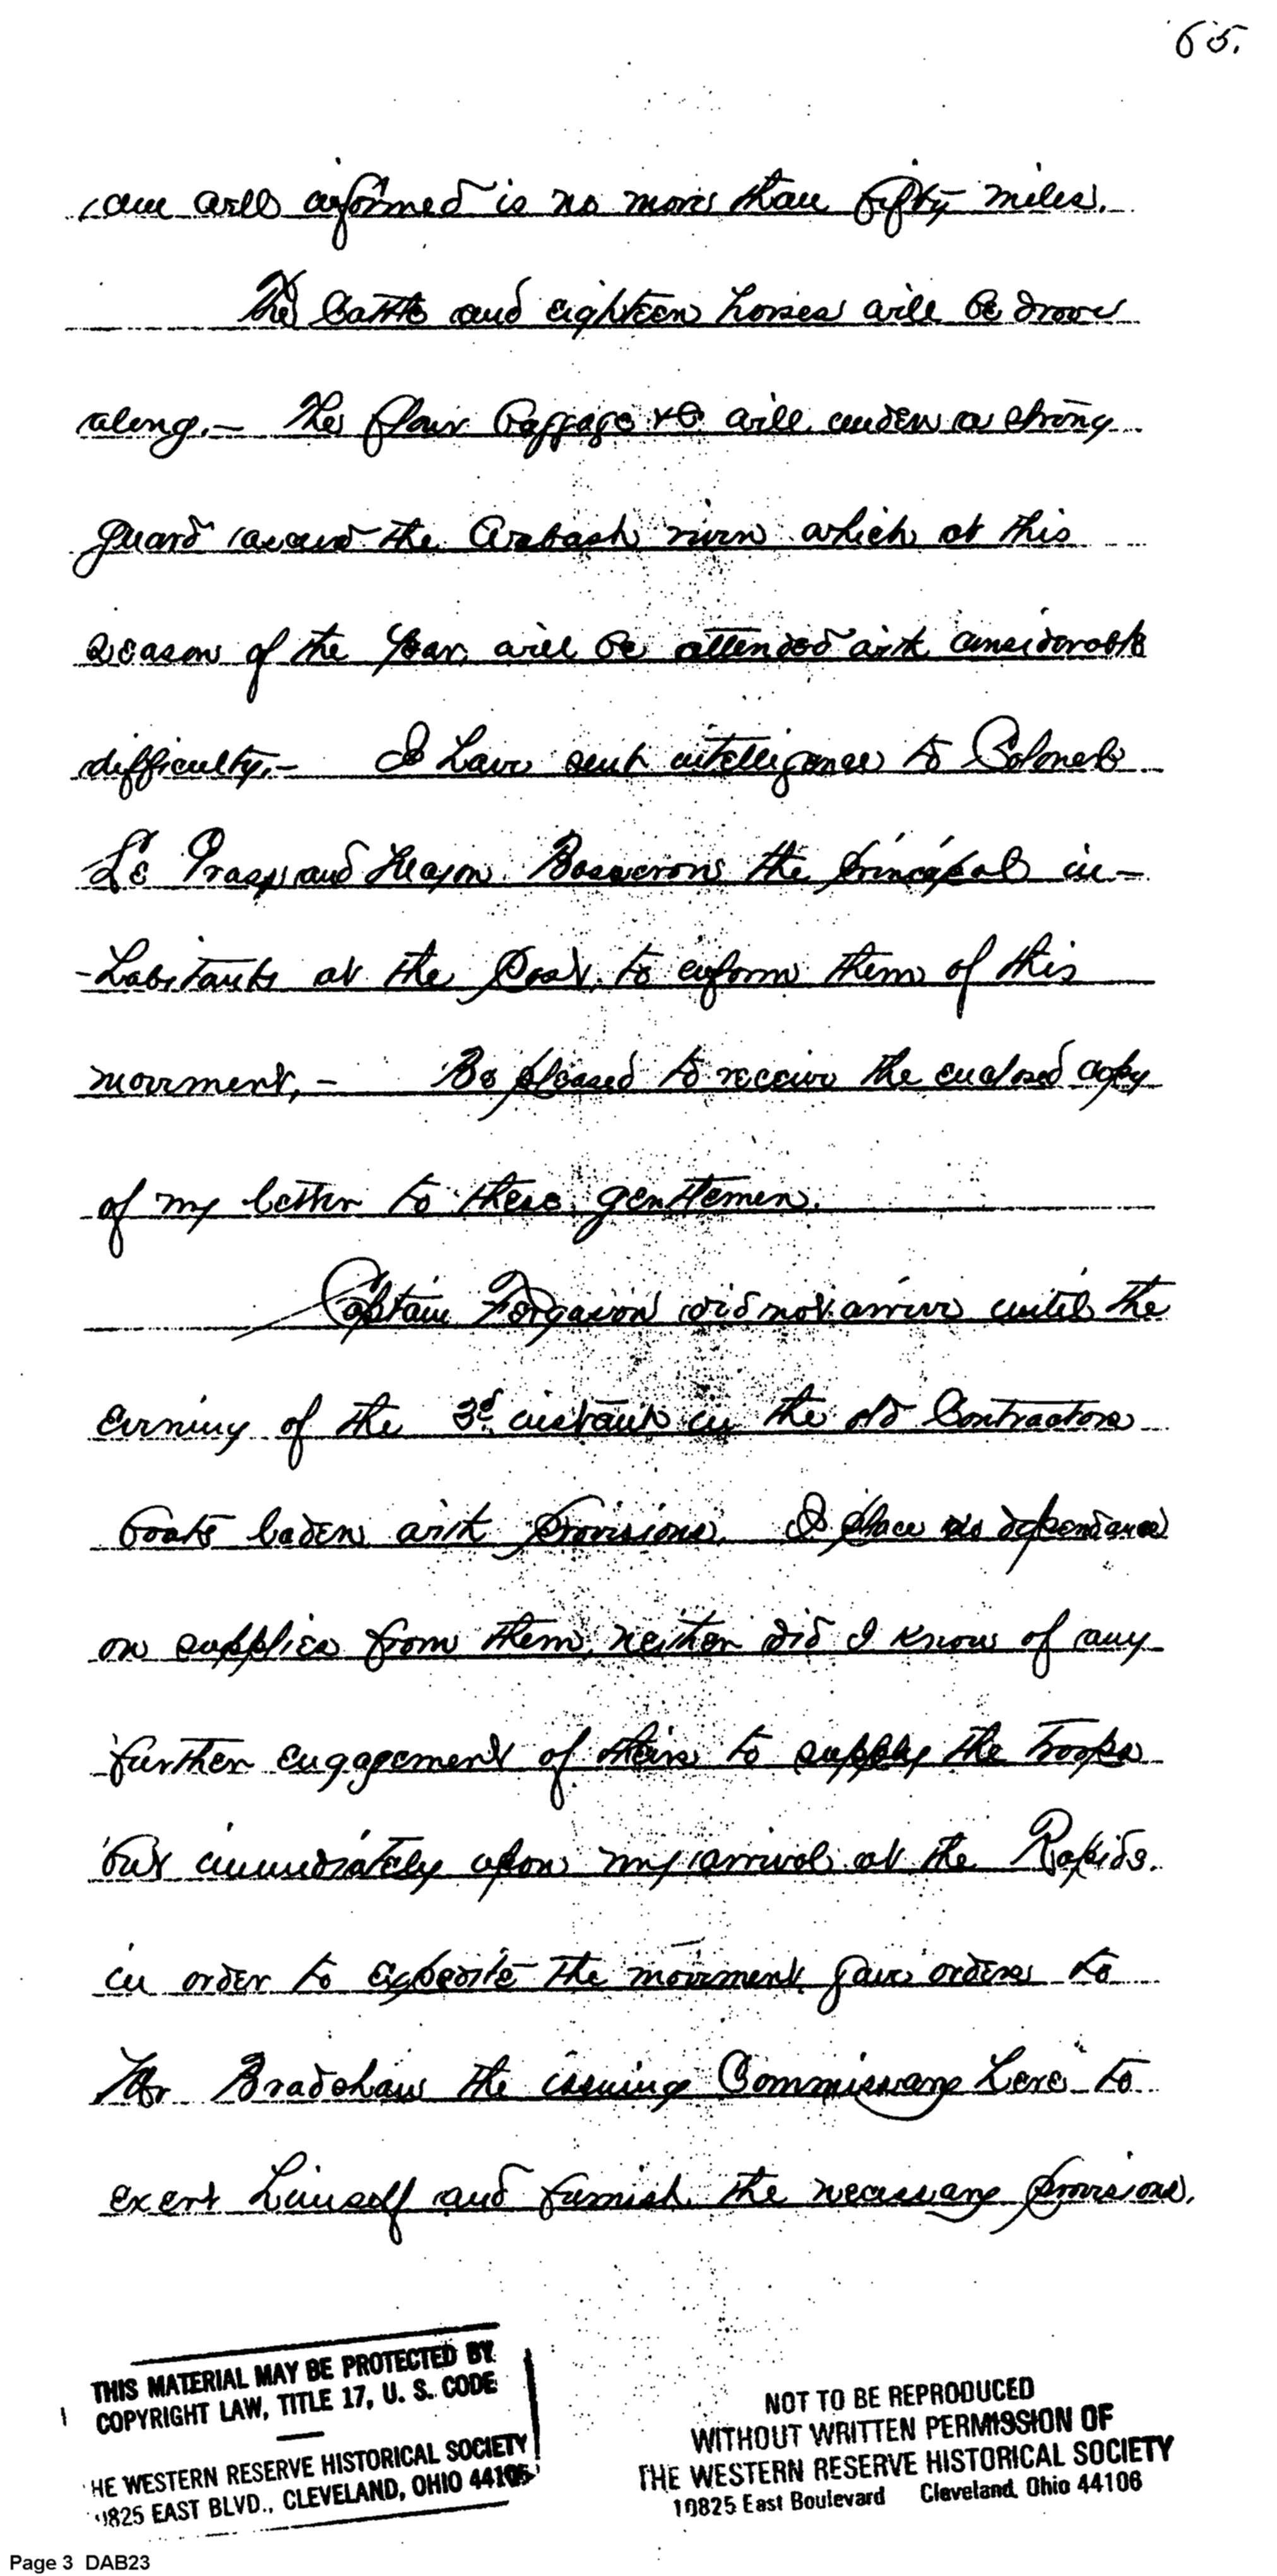 65.
am well informed is no more than fifty miles.
The Cattle and eighteen horses will be drove
along.— The flour Baggage &c will under a strong
guard ascend the Wabash river which at this
season of the Year, will be attended with considerable
difficulty.— I have sent intelligence to Colonel
Le Grass and Major Bosseron the principal in-
-habitants at the Post, to inform them of this
movement,— Be pleased to receive the enclosed copy
of my letter to these gentlemen.
Captain Fergason did not arrive until the
evening of the 3d. instant in the old Contractors
boats laden with provisions. I place no dependance
on supplies from them, neither did I know of any
further engagement of theirs to supply the troops
but immediately upon my arrival at the Rapids.
in order to expedite the movement gave orders to
Mr Bradshaw the issuing Commissary here to
exert himself and furnish the necessary provisions.
THIS MATERIAL MAY BE PROTECTED BY
COPYRIGHT LAW, TITLE 17, U. S. CODE
HE WESTERN RESERVE HISTORICAL SOCIETY
0825 EAST BLVD., CLEVELAND, OHIO 44106
NOT TO BE REPRODUCED
WITHOUT WRITTEN PERMISSION OF
THE WESTERN RESERVE HISTORICAL SOCIETY
10825 East Boulevard Cleveland, Ohio 44106
Page 3 DAB23